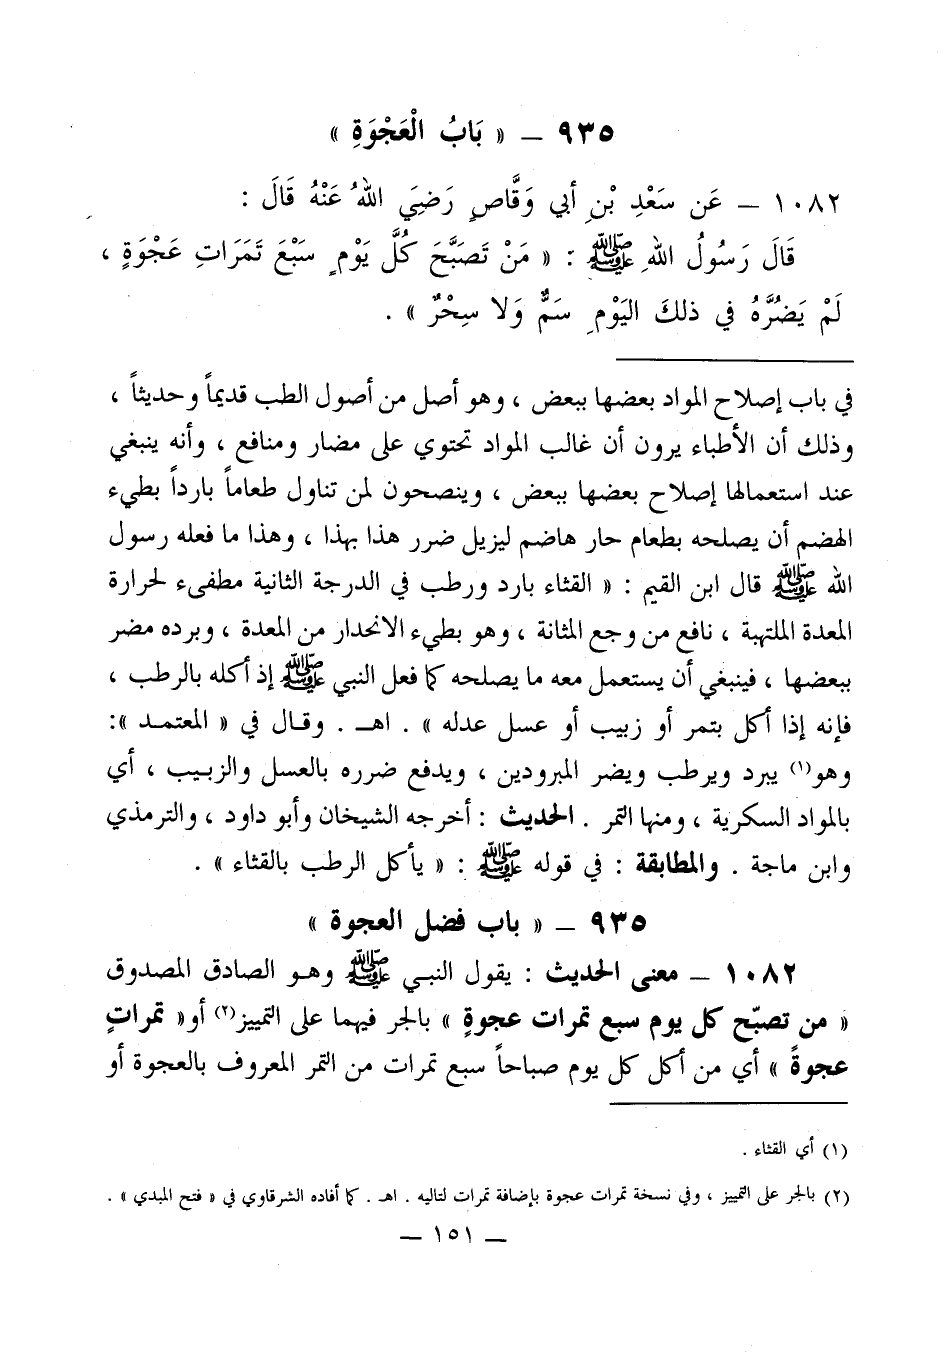 ٩٣٥ – « بَابُ الْعَجْوَةِ »
١٠٨٢ – عَن سَعْدِ بْنِ أبي وَقَّاصٍ رَضِيَ اللهُ عَنْهُ قَالَ :
قَالَ رَسُولُ اللهِ ﷺ : « مَنْ تَصَبَّحَ كُلَّ يَوْمٍ سَبْعَ تَمَرَاتِ عَجْوَةٍ ،
لَمْ يَضُرَّهُ في ذلكَ اليَوْمِ سَمٌّ وَلا سِحْرٌ » .
في باب إصلاح المواد بعضها ببعض ، وهو أصل من أصول الطب قديماً وحديثاً ،
وذلك أن الأطباء يرون أن غالب المواد تحتوي على مضار ومنافع ، وأنه ينبغي
عند استعمالها إصلاح بعضها ببعض ، وينصحون لمن تناول طعاماً بارداً بطيء
الهضم أن يصلحه بطعام حار هاضم ليزيل ضرر هذا بهذا ، وهذا ما فعله رسول
الله ﷺ قال ابن القيم : « القثاء بارد ورطب في الدرجة الثانية مطفىء لحرارة
المعدة الملتهبة ، نافع من وجع المثانة ، وهو بطيء الانحدار من المعدة ، وبرده مضر
ببعضها ، فينبغي أن يستعمل معه ما يصلحه كما فعل النبي ﷺ إذ أكله بالرطب ،
فإنه إذا أكل بتمر أو زبيب أو عسل عدله » . اهـ . وقال في « المعتمد »:
وهو(١) يبرد ويرطب ويضر المبرودين ، ويدفع ضرره بالعسل والزبيب ، أي
بالمواد السكرية ، ومنها التمر . الحديث : أخرجه الشيخان وأبو داود ، والترمذي
وابن ماجة . والمطابقة : في قوله ﷺ : « يأكل الرطب بالقثاء » .
٩٣٥ – « باب فضل العجوة »
١٠٨٢ – معنى الحديث : يقول النبي ﷺ وهو الصادق المصدوق
« من تصبّح كل يوم سبع تمرات عجوةٍ » بالجر فيهما على التمييز(٢) أو« تمراتٍ
عجوةً » أي من أكل كل يوم صباحاً سبع تمرات من التمر المعروف بالعجوة أو
(١) أي القثاء .
(٢) بالجر على التمييز ، وفي نسخة تمرات عجوة بإضافة تمرات لتاليه . اهـ . كما أفاده الشرقاوي في « فتح المبدي » .
– ١٥١ –